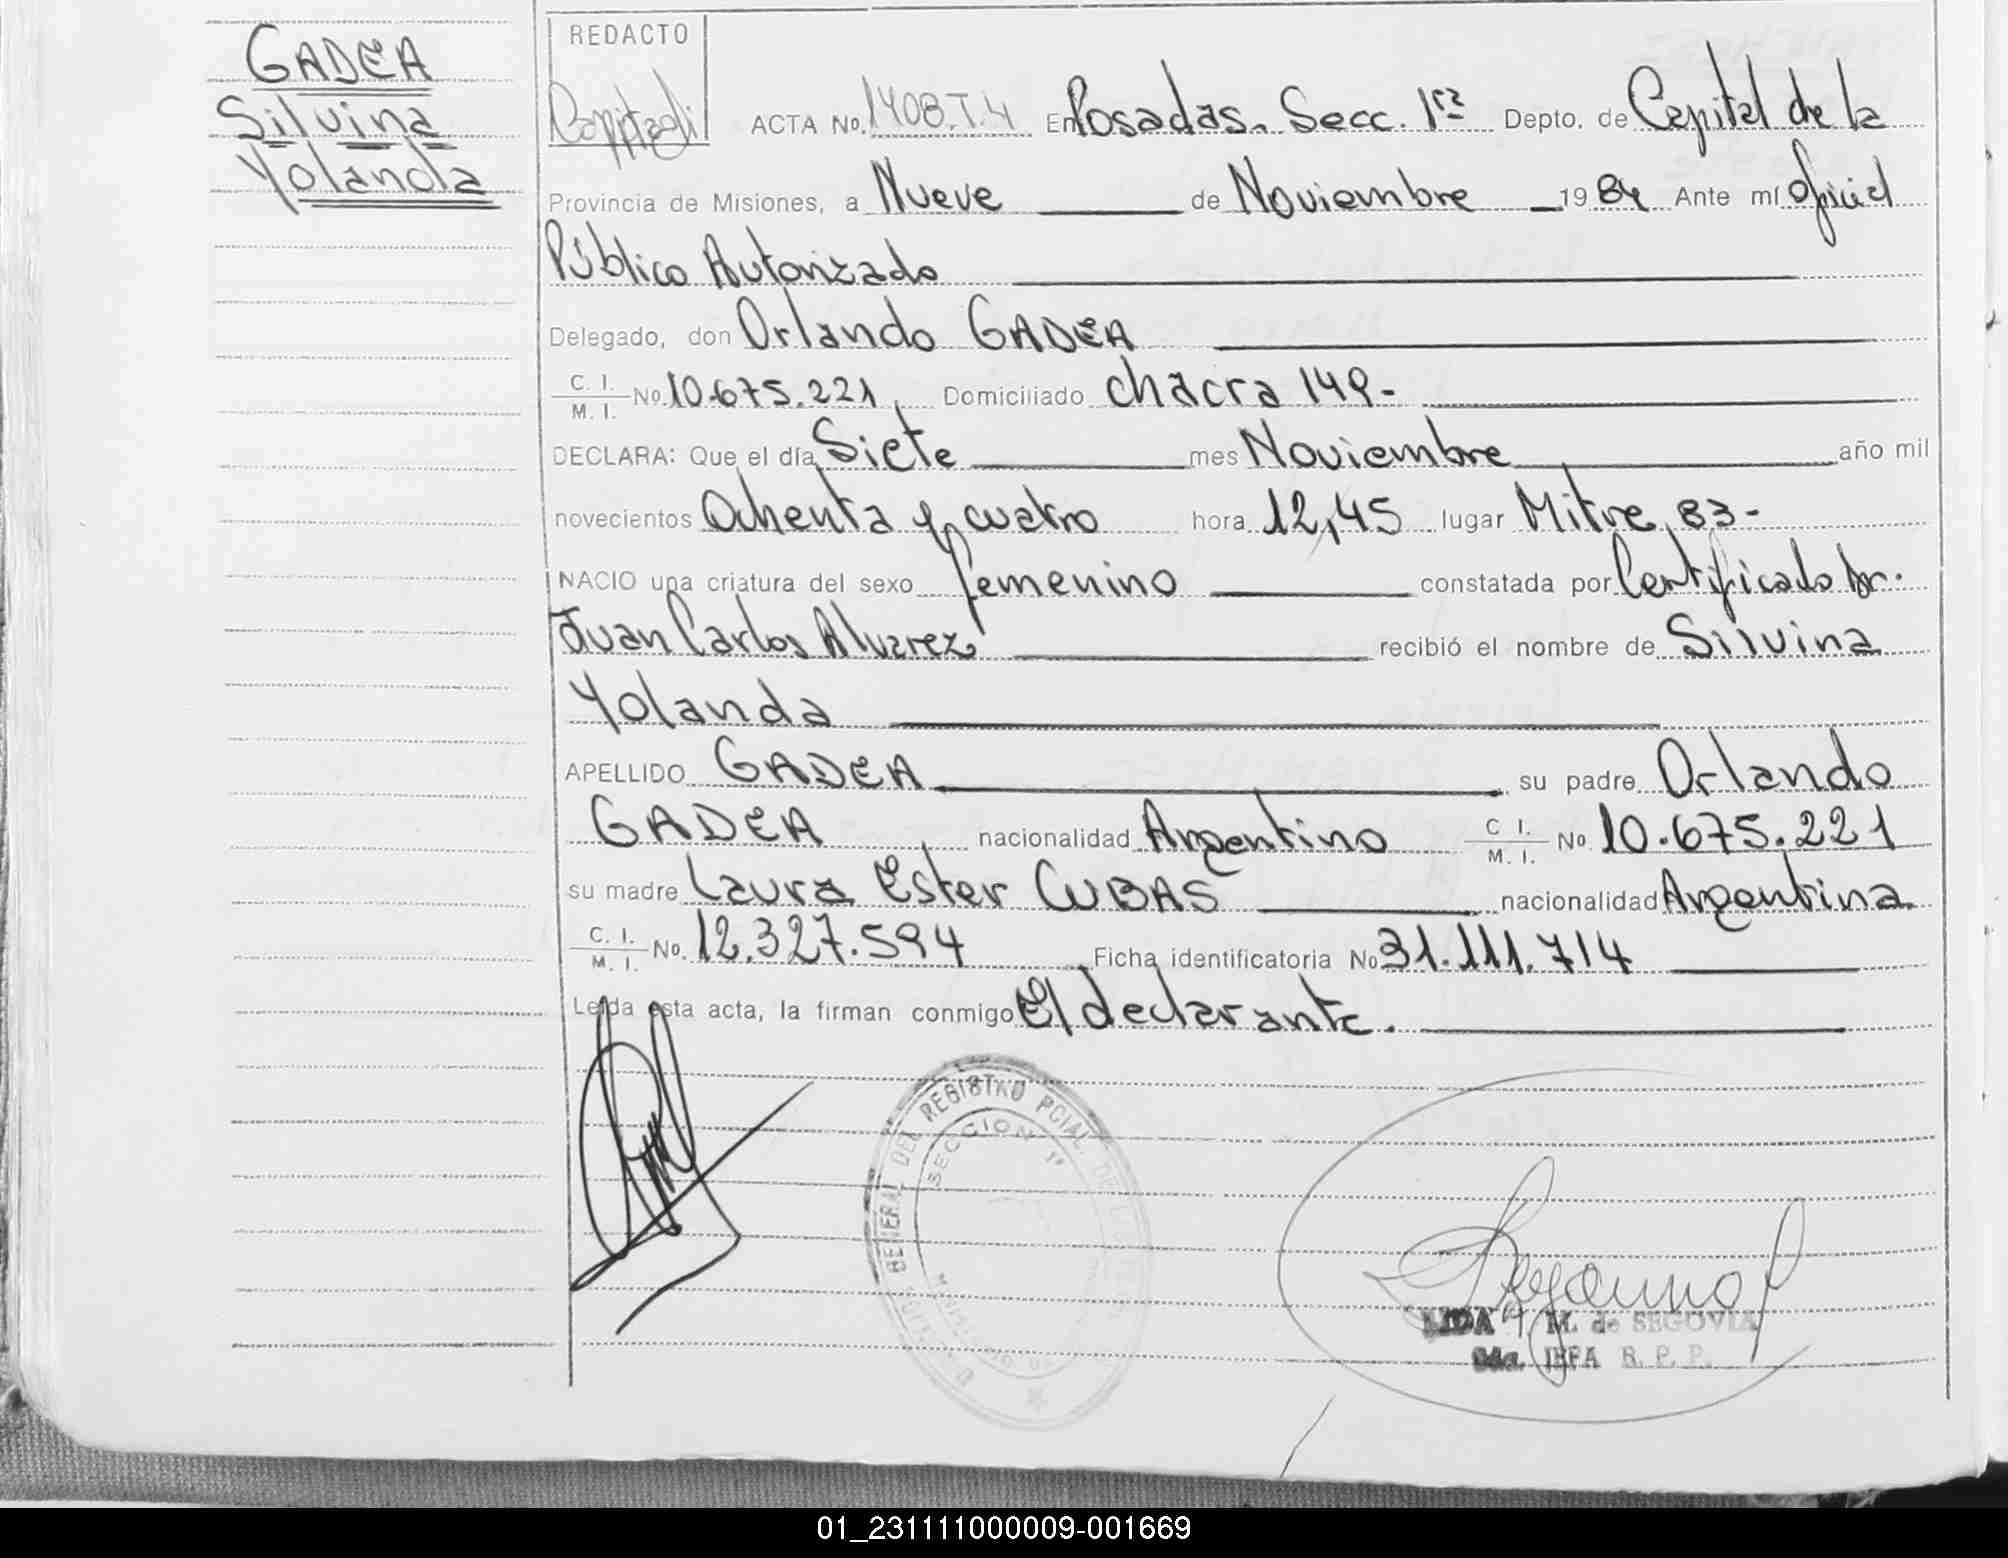 GADEA
Silvina
Yolanda
REDACTO
ACTA No. 1408.T.4 En Posadas. Secc. 1ra Depto. de Capital de la
Provincia de Misiones, a Nueve de Noviembre 1984 Ante mí Oficial
Público Autorizado
Delegado, don Orlando GADEA
C. I.
M. I. No. 10.675.221 Domiciliado chacra 149.-
DECLARA: Que el día Siete mes Noviembre año mil
novecientos Ochenta y cuatro hora 12,45 lugar Mitre 83-
NACIO una criatura del sexo femenino constatada por Certificado Dr.
Juan Carlos Alvarez recibió el nombre de Silvina
Yolanda
APELLIDO GADEA su padre Orlando
GADEA nacionalidad Argentino C I.
M. I. No. 10.675.221
su madre Laura Ester CUBAS nacionalidad Argentina
C. I.
M. I. No. 12.327.594 Ficha identificatoria No 31.111.714
Leída esta acta, la firman conmigo El declarante.
GENERAL DEL REGISTRO PCIAL. DE
SECCION 1ª
LIDA M. de SEGOVIA
JEFA R. P. P.
01_231111000009-001669